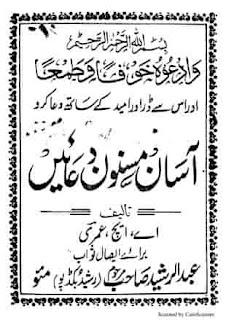 بِسْمِ اللهِ الرَّحْمٰنِ الرَّحِيْمِ
وَادْعُوْهُ خَوْفًا وَّطَمَعًا
اور اس سے ڈر اور امید کے ساتھ دعا کرو
آسان مسنون دعائیں
تالیف
اے، ایچ، عمری
برائے ایصال ثواب
عبدالرشید صاحب مرحوم (رشید بکڈپو) مئو
Scanned by CamScanner